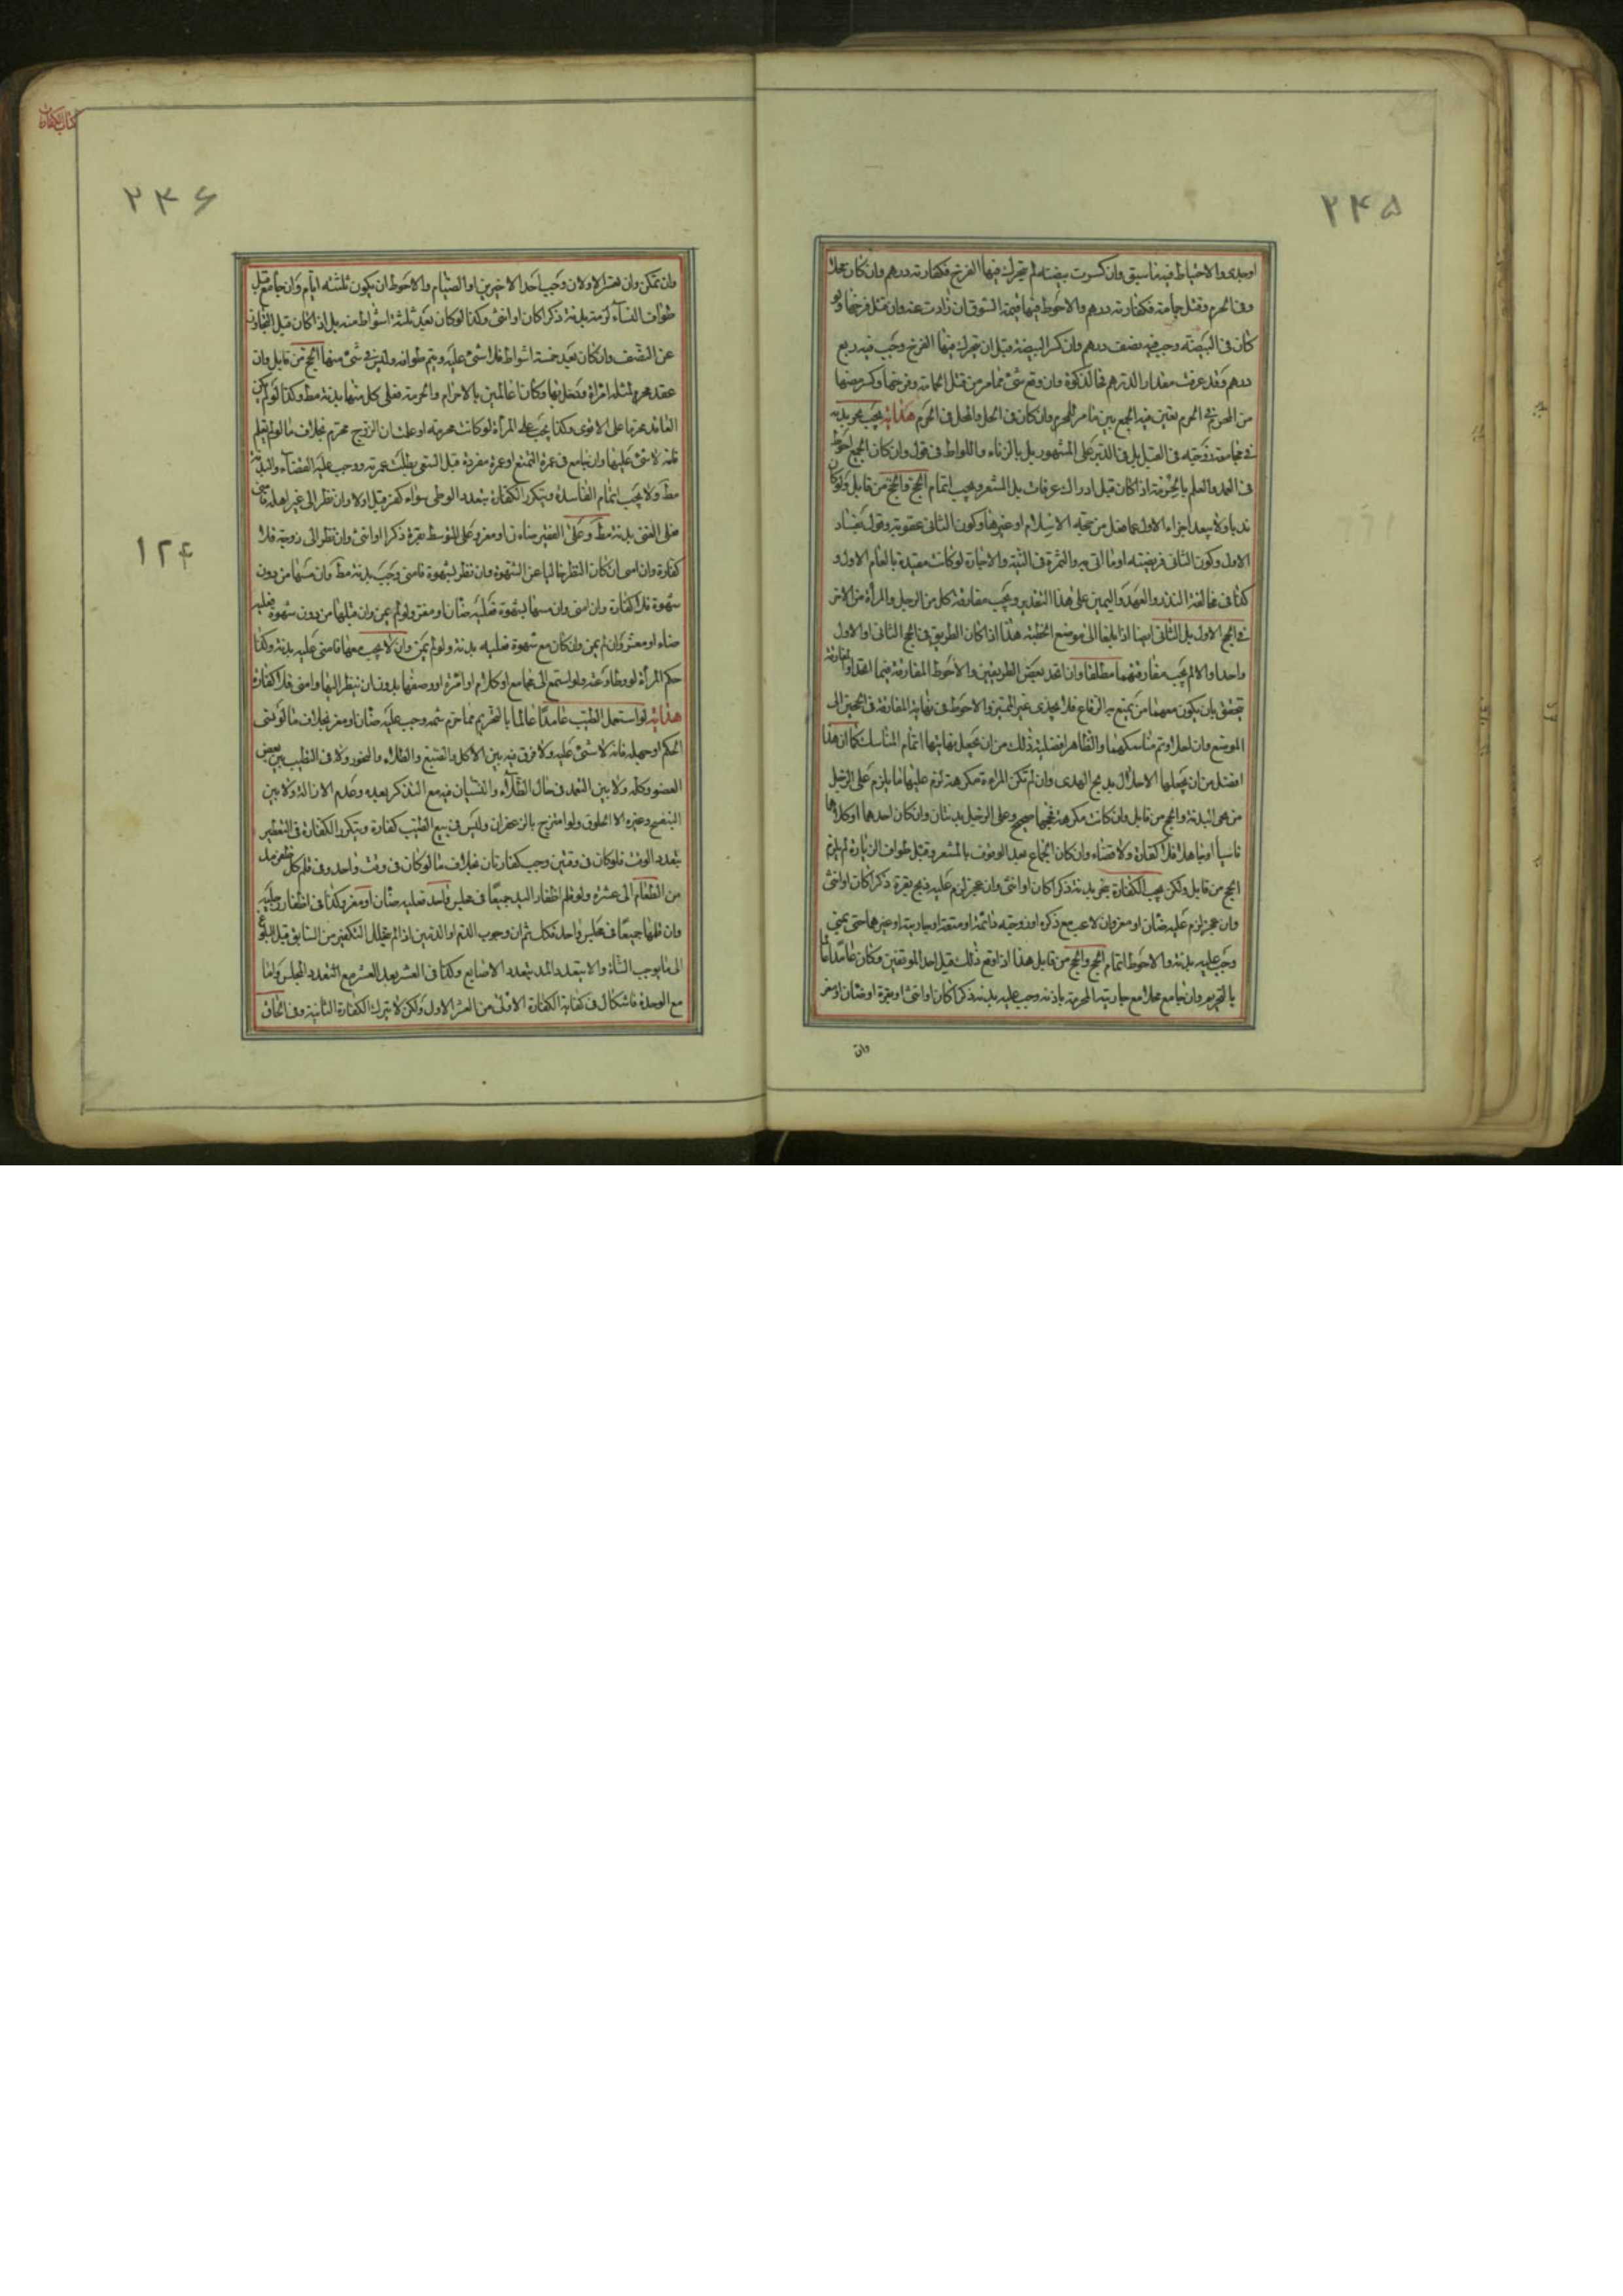 ۲۴۵
او جدى والاحتياط فيه ما سبق وان كسرت بيضته لم يتحرك فيها الفرخ فكفارته درهم وان كان محلا
وفى الحرم وقتل حمامة فكفارته درهم والاحوط فيها قيمة السوق ان زادت عنه وان قتل فرخها ولو
كان فى البيضة وجب فيه نصف درهم وان كسر البيضة قبل ان يتحرك فيها الفرخ وجب فيه ربع
درهم وقد عرفت مقدار الدرهم فى الزكوة وان وقع شئ مما مر من قتل الحمامة وفرخها وكسر بيضها
من المحرم فى الحرم تعين فيه الجمع بين ما مر للمحرم وان كان فى الحل والمحل فى الحرم هداية يجب نحر بدنة
فى مجامعة زوجته فى القبل بل فى الدبر على المشهور بل بالزناء واللواط فى قول وان كان الجمع احوط
فى العمد والعلم بالحرمة اذا كان قبل ادراك عرفات بل المشعر ويجب اتمام الحج والحج من قابل ولو كان
ندبا ولا يبعد اجزاء الاول عما فعل من حجة الاسلام او غيرها وكون الثانى عقوبة وقول بفساد
الاول وكون الثانى فريضته اوما اتى به والثمرة فى النية والاجارة لو كانت مقيدة بالعام الاول و
كذا فى مخالفة النذر والعهد واليمين على هذا التقدير ويجب مفارقة كل من الرجل والمرأة من الاخر
فى الحج الاول بل الثانى ايضا اذا بلغا الى موضع الخطيئة هذا اذا كان الطريق فى الحج الثانى او الاول
واحدا والا لم يجب مفارقتهما مطلقا وان اتحد بعض الطريقين والاحوط المفارقة فيما اتحد والمفارقة
تتحقق بان يكون معهما من يمتنع به الوقاع فلا يجدى غير المميز والاحوط فى نهاية المفارقة فى الحجين الى
الموضع وان احلا وتم مناسكهما والظاهر افضلية ذلك من ان يجعل نهايتها اتمام المناسك كما ان هذا
افضل من ان يجعلها الاحلال بذبح الهدى وان لم تكن المراة مكرهة لزم عليها ما يلزم على الرجل
من البدنة والحج من قابل وان كانت مكرهة فحجها صحيح وعلى الرجل بدنتان وان كان احدهما او كلاهما
ناسيا او جاهلا فلا كفارة ولا قضاء وان كان الجماع بعد الوقوف بالمشعر وقبل طواف الزيارة لم يلزم
الحج من قابل ولكن يجب الكفارة بنحر بدنة ذكرا كان او انثى وان عجز لزم عليه ذبح بقرة ذكرا كان او انثى
وان عجز لزم عليه ضان او معز وان لاعب مع ذكره او زوجته دائمة او متعة او جاريته او غيرها حتى يمنى
وجب عليه بدنة والاحوط اتمام الحج والحج من قابل هذا اذا وقع ذلك قبل احد الموقفين وكان عامدا عالما
بالتحريم وان جامع محلا مع جاريته المحرمة باذنه وجب عليه بدنة ذكرا كان او انثى او بقرة او ضان او معز
وان
كتاب الكفارات
۲۴۶
وان تمكن وان فقد الاولان وجب احد الاخيرين او الصيام والاحوط ان يكون ثلثة ايام وان جامع قبل
طواف النساء لزمته بدنة ذكرا كان او انثى وكذا لو كان بعد ثلثة اشواط منه بل اذا كان قبل التجاوز
عن النصف وان كان بعد خمسة اشواط فلا شئ عليه ويتم طوافه وليس فى شئ منها الحج من قابل وان
عقد محرم لمثله امراة ودخل بها وكانا عالمين بالاحرام والحرمة فعلى كل منهما بدنة مط وكذا لو لم يكن
العاقد محرما على الاقوى وكذا يجب على المرأة لو كانت محرمة او علمت ان الزوج محرم بخلاف ما لو لم تعلم
فانه لا شئ عليها وان جامع فى عمرة التمتع او عمرة مفردة قبل السعى بطلت عمرته ووجب عليه القضاء والبدنة
مط ولا يجب اتمام الفاسدة ويتكرر الكفارة بتعدد الوطى سواء كفر قبل او لا وان نظر الى غير اهله فامنى
فعلى الغنى بدنة مط وعلى الفقير ضان او معز وعلى المتوسط بقرة ذكرا او انثى وان نظر الى زوجته فلا
كفارة وان امنى ان كان النظر خاليا عن الشهوة وان نظر بشهوة فامنى وجب بدنة مط وان مسها من دون
شهوة فلا كفارة وان امنى وان مسها بشهوة فعليه ضان او معز ولو لم يمن وان قبلها من دون شهوة فعليه
ضان او معز وان لم يمن وان كان مع شهوة فعليه بدنة ولو لم يمن وان لاعب معها فامنى عليه بدنة وكذا
حكم المرأة لو وطاوعته ولو استمع الى مجامع او كلام امراة او وصفها بدون ان ينظر اليها وامنى فلا كفارة
هداية لو استعمل الطيب عامدا عالما بالتحريم مما حرم شمه وجب عليه ضان او معز بخلاف ما لو نسى
الحكم او جهله فانه لا شئ عليه ولا فرق فيه بين الاكل والصبغ والطلاء والبخور ولا فى التطيب بين بعض
العضو وكله ولا بين التعمد فى حال الطلاء والنسيان فيه مع التذكر بعده وعدم الازالة ولا بين
البنفسج وغيره الا الخلوق ولو امتزج بالزعفران وليس فى بيع الطيب كفارة ويتكرر الكفارة فى التعطير
بتعدد الوقت فلو كان فى وقتين وجب كفارتان بخلاف ما لو كان فى وقت واحد وفى قلم كل ظفر مد
من الطعام الى عشرة ولو قلم اظفار اليد جميعا فى مجلس واحد فعليه ضان او معز وكذا فى اظفار رجليه
وان قلمها جميعا فى مجلس واحد فكك ثم ان وجوب الدم او الدمين اذا لم يتخلل التكفير من السابق قبل البلوغ
الى ما يوجب الشاة والا يتعدد المد بتعدد الاصابع وكذا فى العشر بعد العشر مع التعدد المجلس واما
مع الوحدة فاشكال فى كفاية الكفارة الاولى من العشر الاول ولكن لا يترك الكفارة الثانية وفى الحاق
۱۲۴